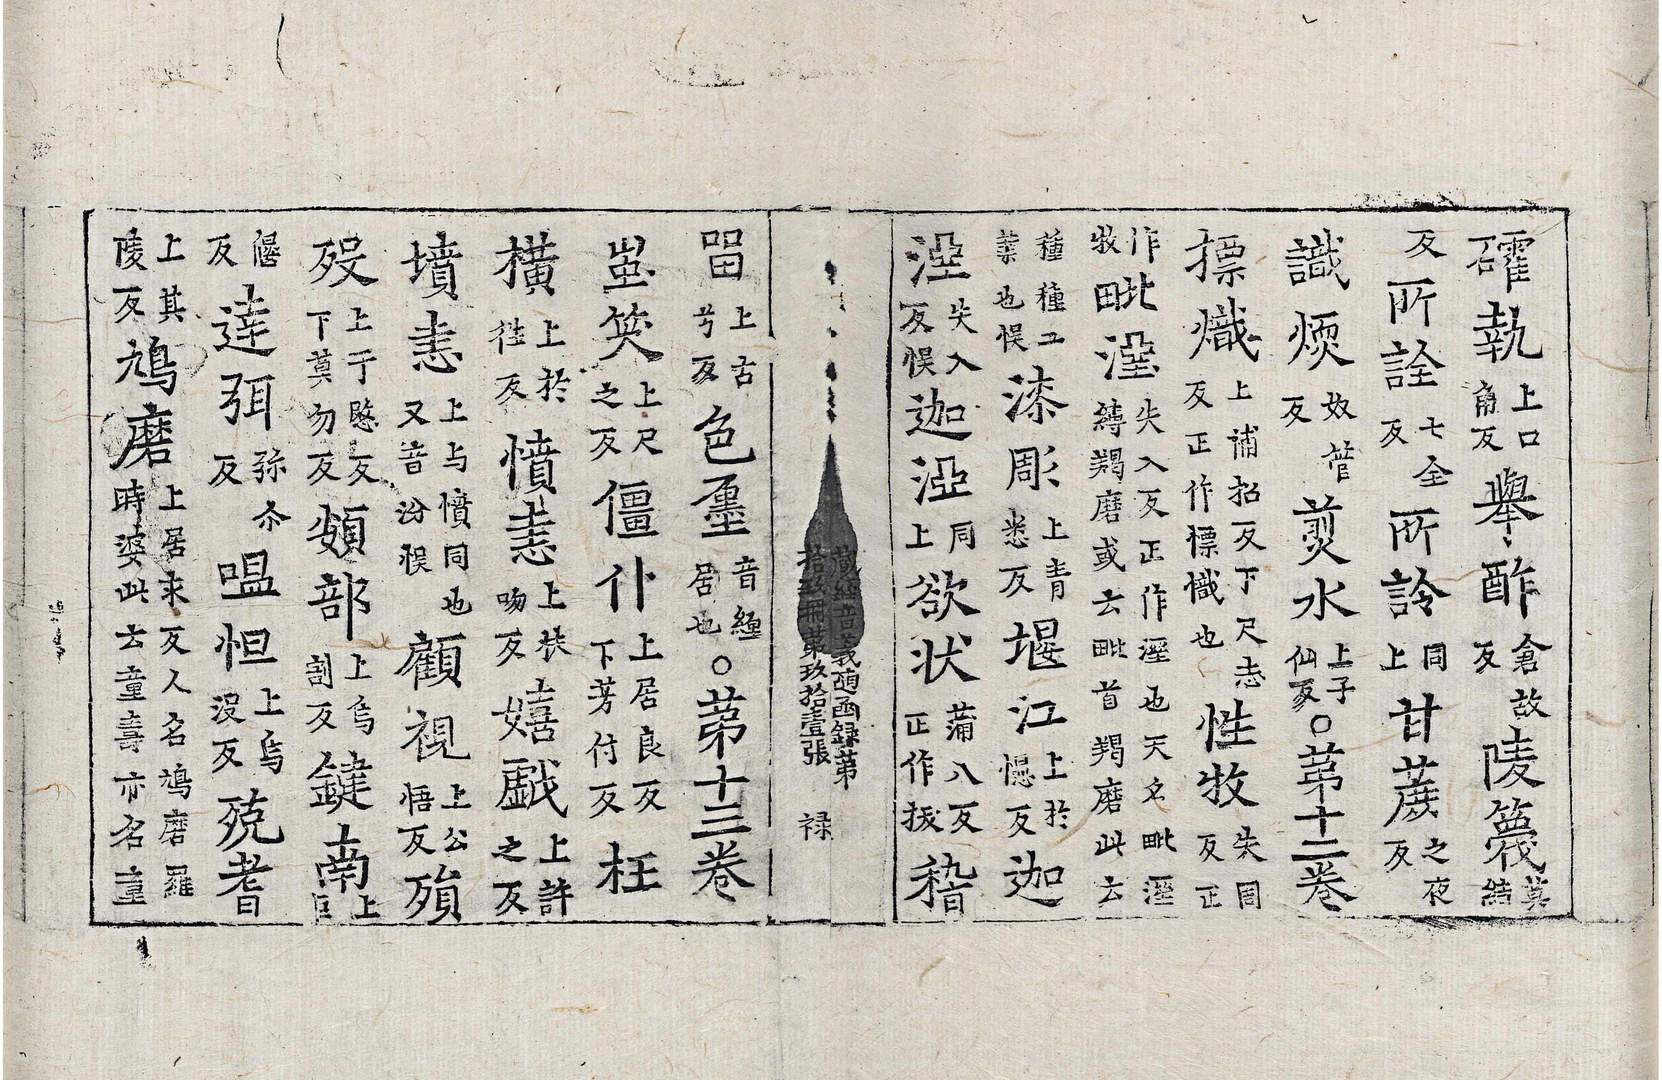 礭執上口角反舉酢倉故反陵篾莫結
反所詮七全反所詅同上甘蔗之夜反
識煗奴管反煎水上子仙反○第十二卷
摽熾上補招反下尺志反正作幖幟也性牧失同反正
作牧毗溼失入反正作溼也天名毗溼縛羯磨或云毗首羯磨此云
種種工業也悮漆彫上青悉反堰江上於憶反迦
溼失入反悮迦溼同上欲状蒲八反正作拔稽
㽞上古兮反色壃音繮居也○第十三卷
蚩笑上尺之反僵仆上居良反下芳付反枉
橫上於往反憤恚上扶吻反嬉戯上許之反
墳恚上与憤同也又音汾悮顧視上公悟反殞
歿上于愍反下莫勿反頞部上烏割反鍵南上巨
偃反達弭弥尒反嗢怛上烏没反殑耆
上其陵反鳩磨上居求反人名鳩磨羅時婆此云童壽亦名童
藏經音義随函録第
拾玖册第玖拾壹張 禄